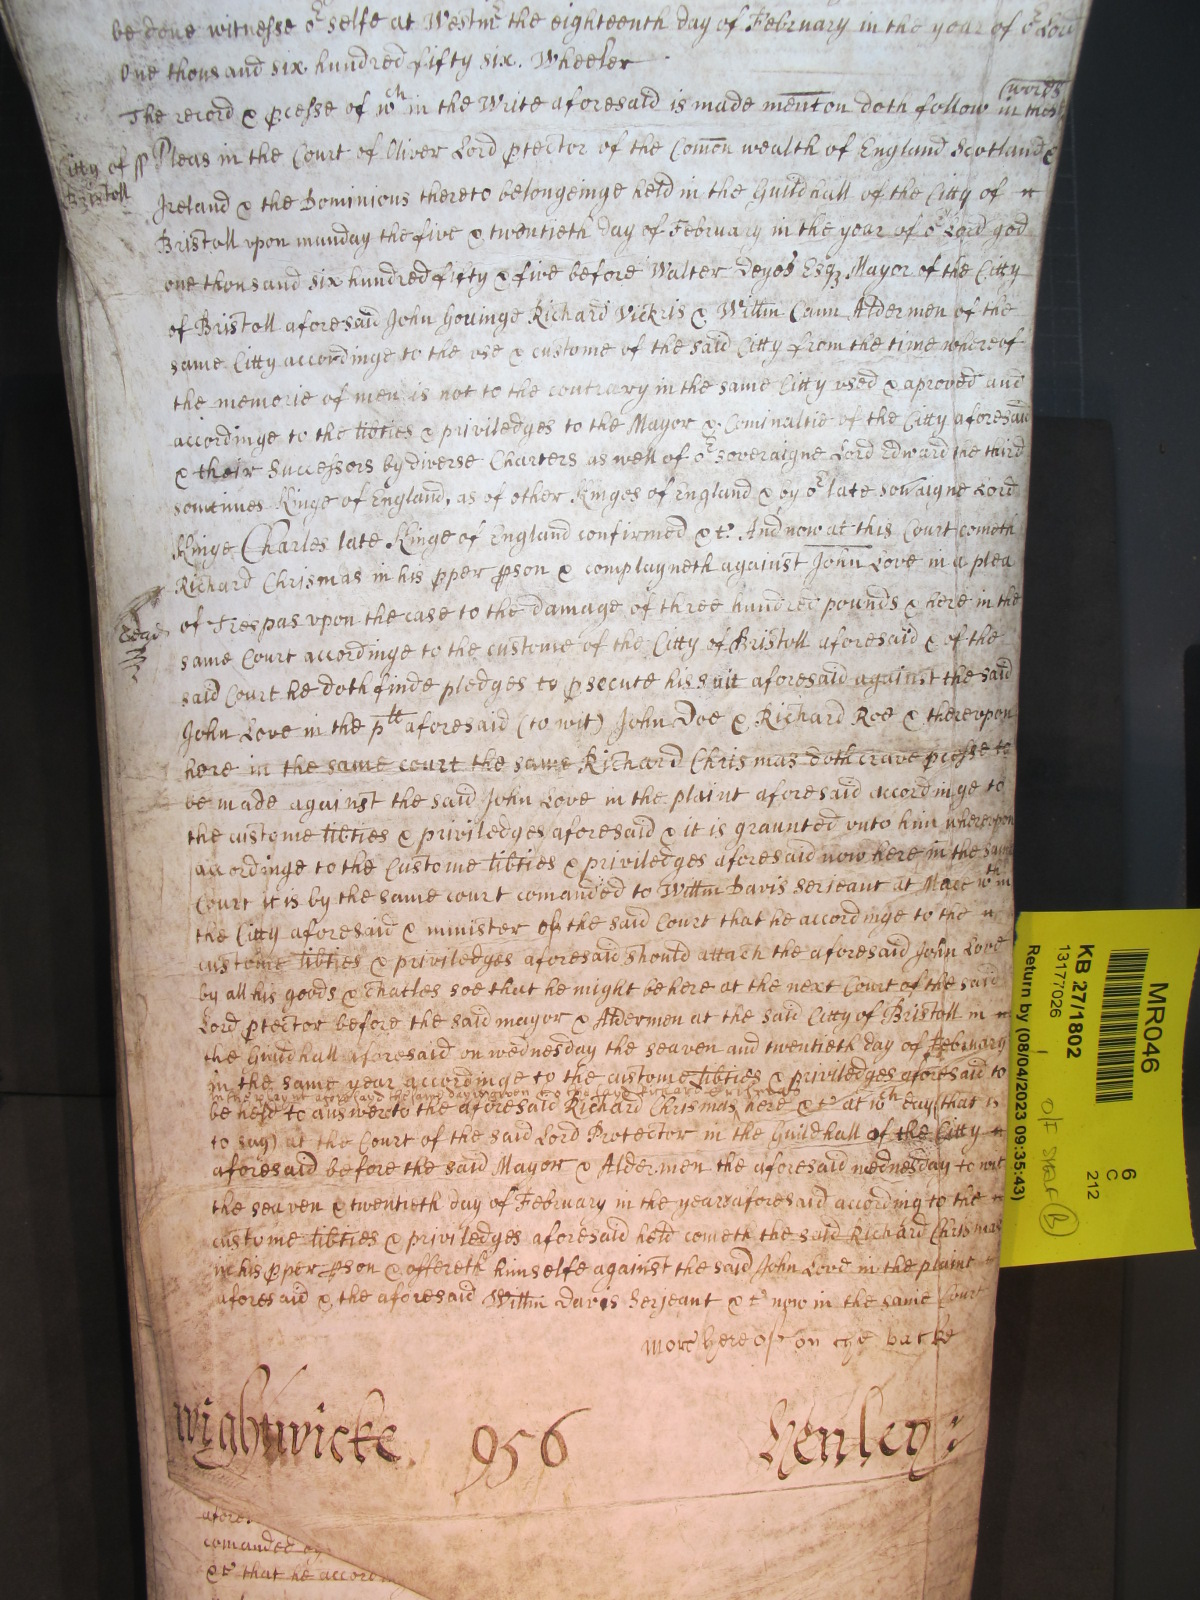 be done witnesse or selfe at Westmr the eighteenth day of February in the year of or Lord
One thousand six hundred fifty six. Wheeler
The record & pcesse of wch in the Write aforesaid is made menton doth follow in these words
Citty of Bristoll ss Pleas in the Court of Oliver Lord ptector of the Comon wealth of England Scotland &
Ireland & the Dominions thereto belongeinge held in the Guildhall of the Citty of
Bristoll vpon munday the five & twentieth day of February in the year of or Lord god
one thousand six hundred fifty & five before Walter Deyos Esqz Mayor of the Citty
of Bristoll aforesaid John Gouinge Richard Vickris & Willm Cann Aldermen of the
same Citty accordinge to the vse & custome of the said Citty from the time whereof
the memorie of men is not to the contrary in the same Citty vsed & aproved and
accordinge to the libties & priviledges to the Mayor & Cominaltie of the Citty aforesaid
& their Successors by diverse Charters as well of or soveraigne Lord Edward the third
somtimes Kinge of England, as of other Kinges of England & by or late sovaigne Lord
Kinge Charles late Kinge of England confirmed &t. And now at this Court cometh
Richard Chrismas in his pper pson & complayneth against John Love in a plea
of Trespas vpon the case to the damage of three hundred pounds & here in the
same Court accordinge to the custome of the Citty of Bristoll aforesaid & of the
said Court he doth finde pledges to psecute his suit aforesaid against the said
John Love in the plt aforesaid (to wit) John Doe & Richard Roe & therevpon
here in the same court the same Richard Chrismas doth crave pcesse to
be made against the said John Love in the plaint aforesaid accordinge to
the custome libties & priviledges aforesaid & it is graunted vnto him wherevpon
accordinge to the Custome libties & priviledges aforesaid now here in the same
Court it is by the same court comanded to Willm Davis Serjeant at Mace wth in
the Citty aforesaid & minister of the said Court that he accordinge to the
custome libties & priviledges aforesaid should attach the aforesaid John Love
by all his goods & chatles soe that he might be here at the next Court of the said
Lord ptector before the said mayor & Aldermen at the said Citty of Bristoll in
the Guildhall aforesaid on wednesday the seaven and twentieth day of February
in the same year accordinge to the custome libties & priviledges aforesaid to
be held to answere to the aforesaid Richard Chrismas here &t at wch day (that is
to say) at the Court of the said Lord Protector in the Guildhall of the Citty
aforesaid before the said Mayor & Aldermen the aforesaid wednesday to wit
the seaven & twentieth day of February in the yeare aforesaid according to the
custome libties & priviledges aforesaid held cometh the said Richard Chrismas
in his pper pson & offereth himselfe against the said John Love in the plaint
aforesaid & the aforesaid Willm Davis Serjeant &t now in the same Court
more hereof on the backe
Wightwicke 956 Henley
comanded
&t that he accord
MR046
6
C
212
KB 27/1802
13177026
Return by (08/04/2023 09:35:43)